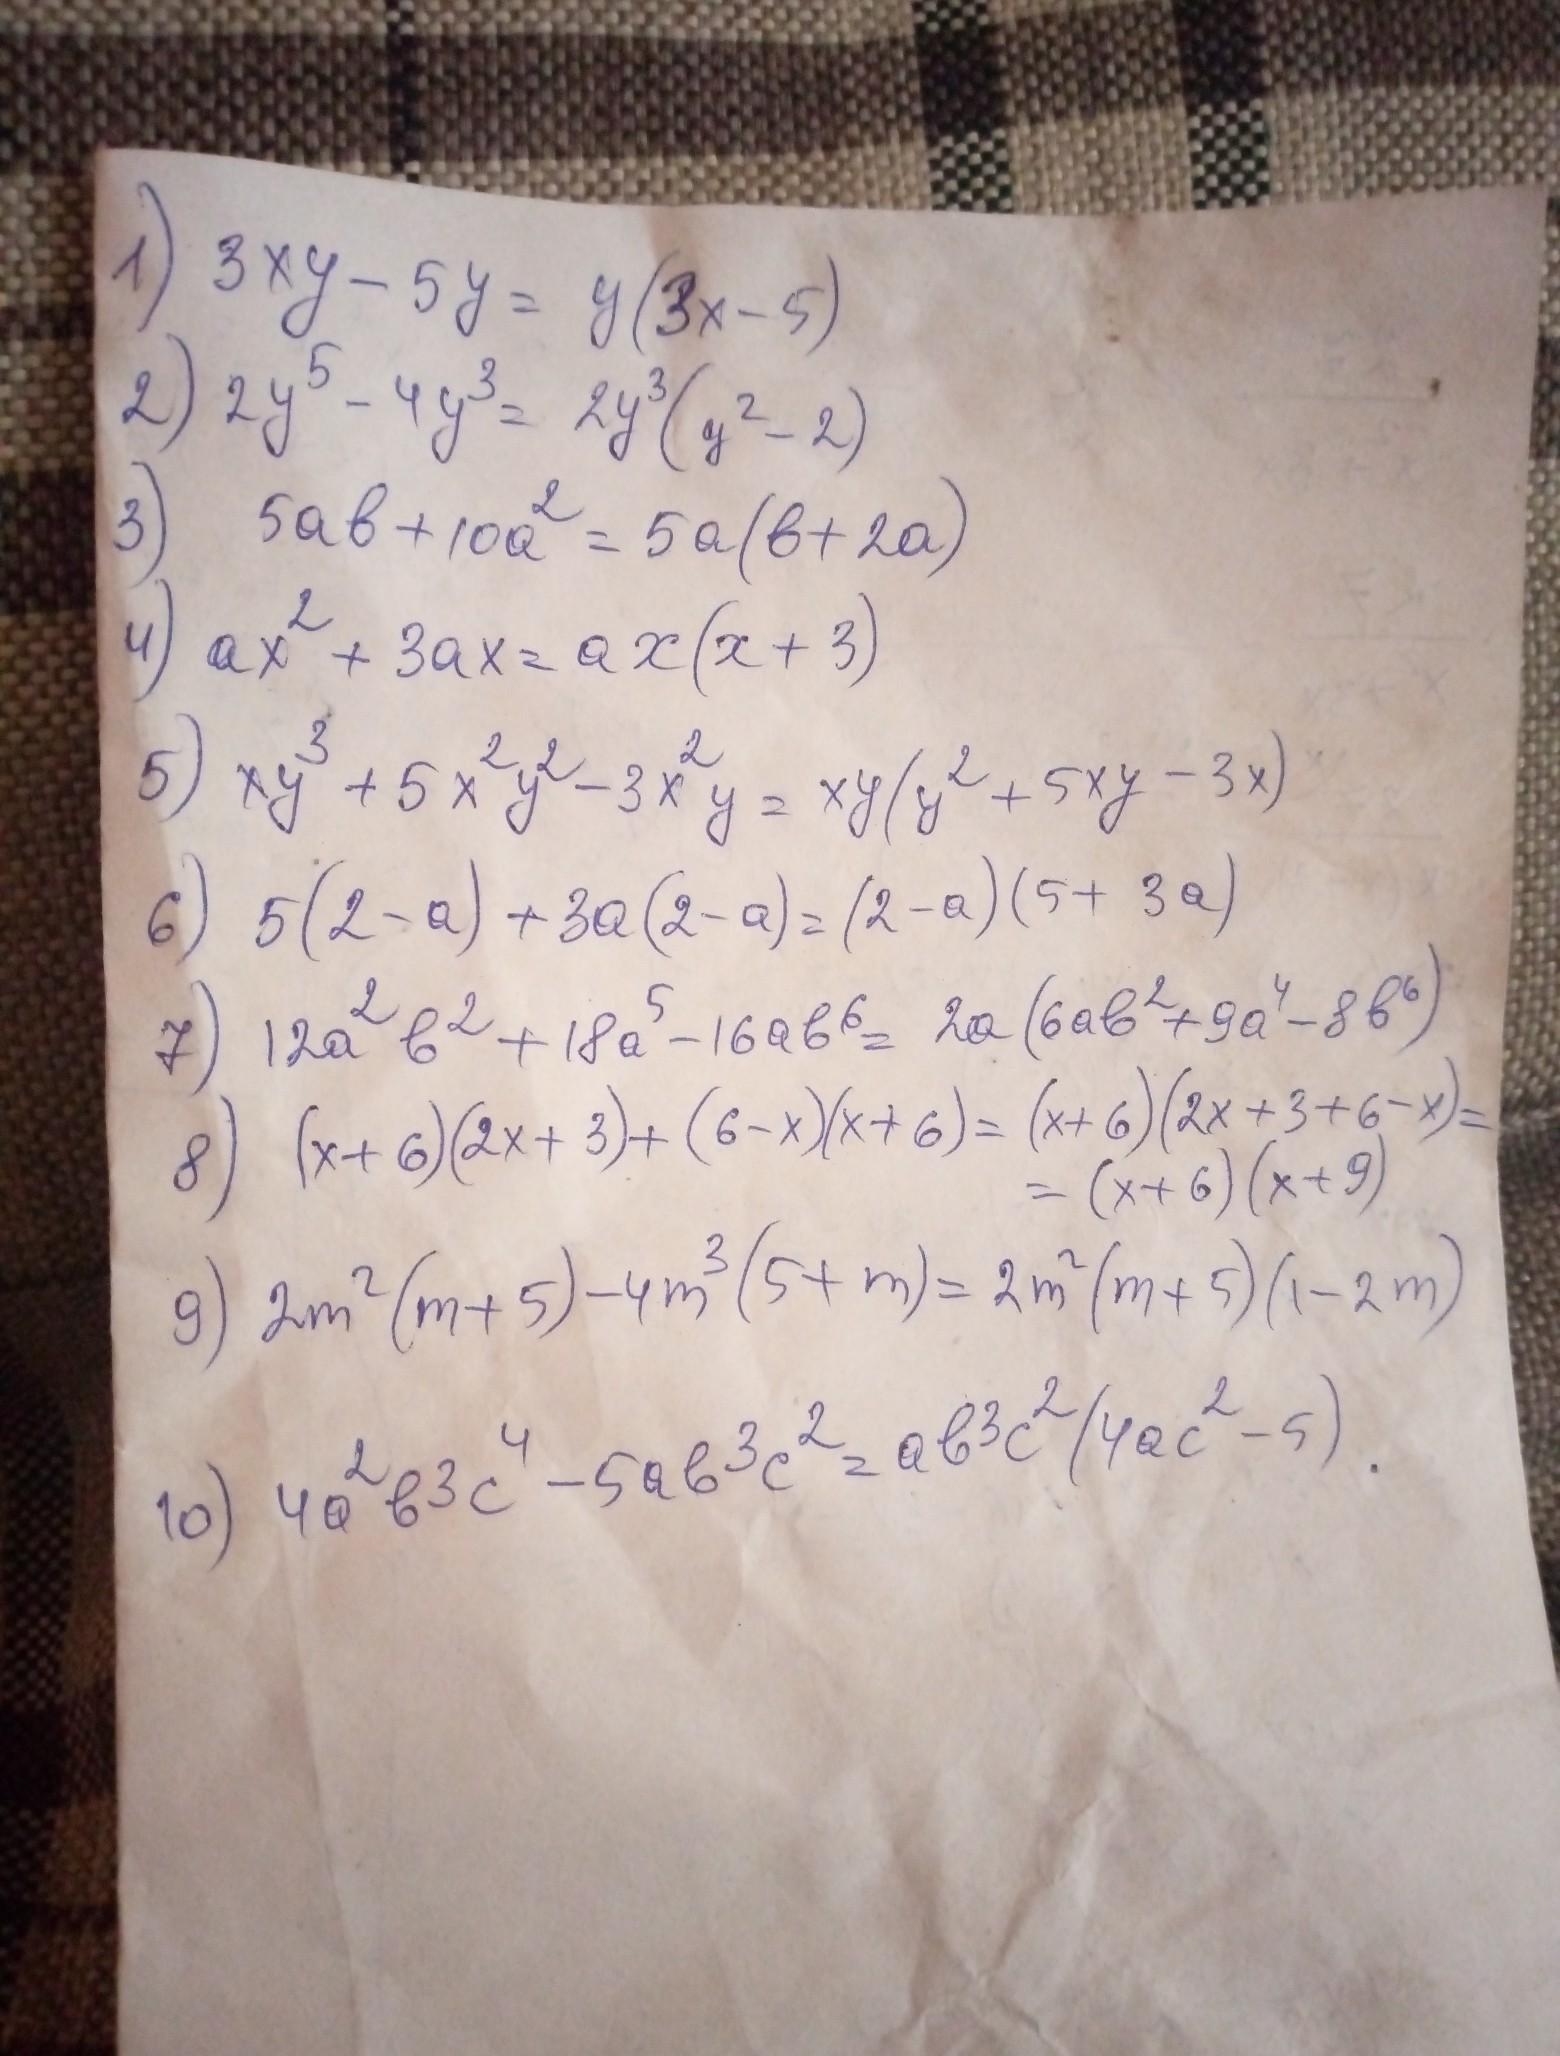 1) 3xy - 5y = y(3x - 5)
2) 2y⁵ - 4y³ = 2y³(y² - 2)
3) 5ab + 10a² = 5a(b + 2a)
4) ax² + 3ax = ax(x + 3)
5) xy³ + 5x²y² - 3x²y = xy(y² + 5xy - 3x)
6) 5(2 - a) + 3a(2 - a) = (2 - a)(5 + 3a)
7) 12a²b² + 18a⁵ - 16ab⁶ = 2a(6ab² + 9a⁴ - 8b⁶)
8) (x + 6)(2x + 3) + (6 - x)(x + 6) = (x + 6)(2x + 3 + 6 - x) =
= (x + 6)(x + 9)
9) 2m²(m + 5) - 4m³(5 + m) = 2m²(m + 5)(1 - 2m)
10) 4a²b³c⁴ - 5ab³c² = ab³c²(4ac² - 5).